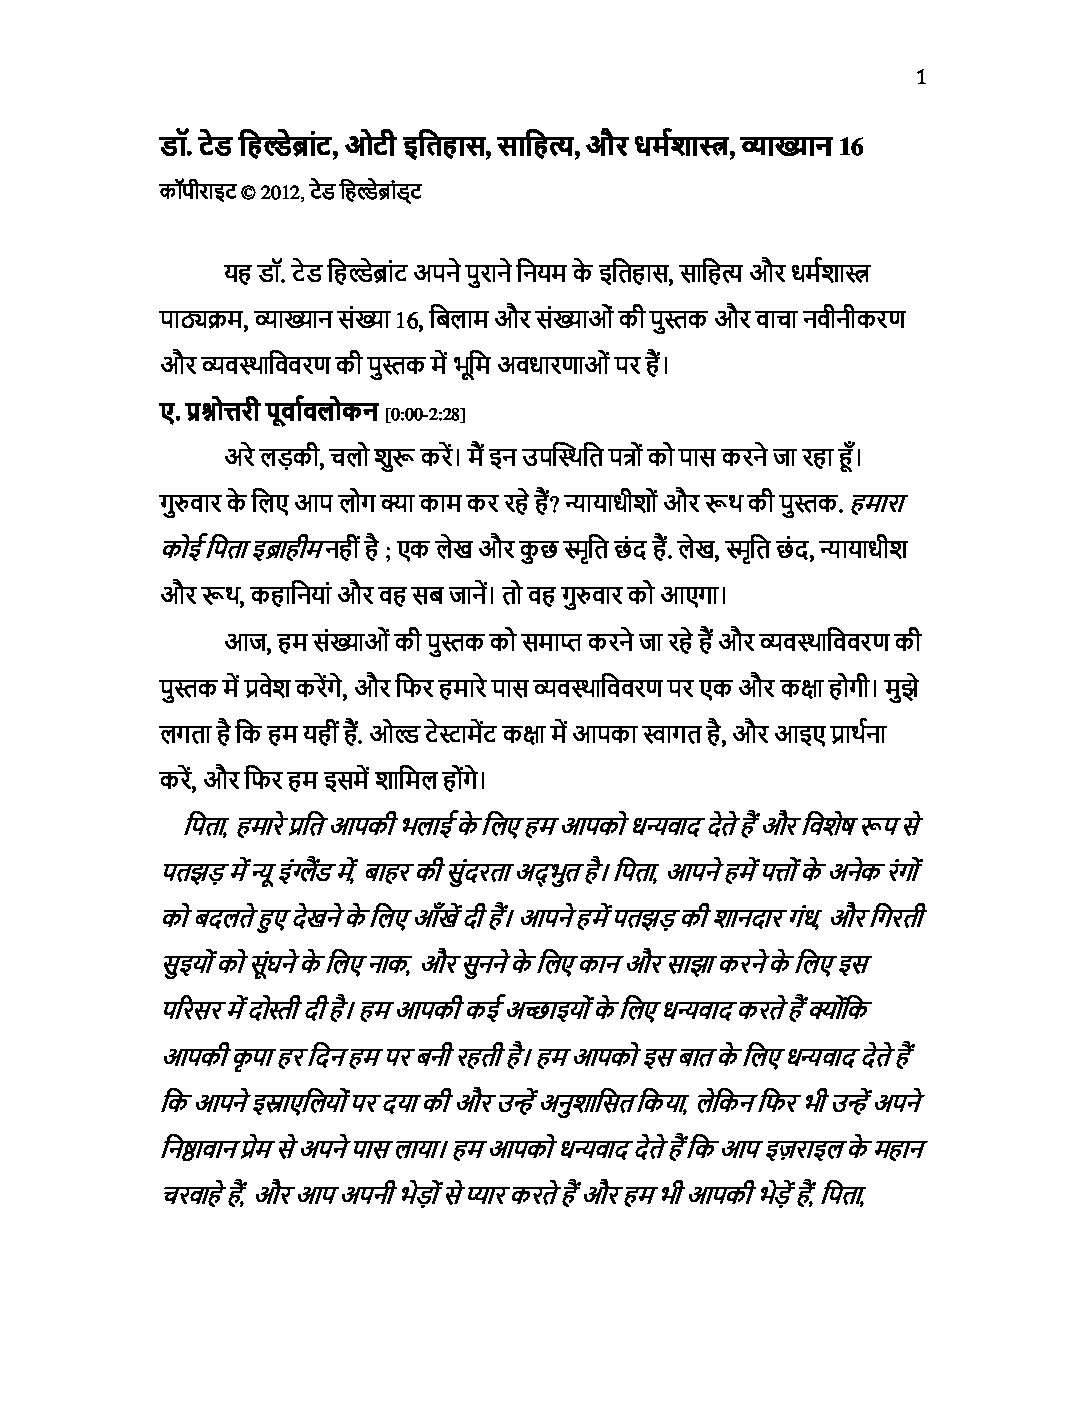 1
डॉ. टेड हिल्डेब्रांट, ओटी इतिहास, साहित्य, और धर्मशास्त्र, व्याख्यान 16
कॉपीराइट © 2012, टेड हिल्डेब्रांड्ट
यह डॉ. टेड हिल्डेब्रांट अपने पुराने नियम के इतिहास, साहित्य और धर्मशास्त्र
पाठ्यक्रम, व्याख्यान संख्या 16, बिलाम और संख्याओं की पुस्तक और वाचा नवीनीकरण
और व्यवस्थाविवरण की पुस्तक में भूमि अवधारणाओं पर हैं।
ए. प्रश्नोत्तरी पूर्वावलोकन [0:00-2:28]
अरे लड़की, चलो शुरू करें। मैं इन उपस्थिति पत्रों को पास करने जा रहा हूँ।
गुरुवार के लिए आप लोग क्या काम कर रहे हैं? न्यायाधीशों और रूथ की पुस्तक. हमारा
कोई पिता इब्राहीम नहीं है ; एक लेख और कुछ स्मृति छंद हैं. लेख, स्मृति छंद, न्यायाधीश
और रूथ, कहानियां और वह सब जानें। तो वह गुरुवार को आएगा।
आज, हम संख्याओं की पुस्तक को समाप्त करने जा रहे हैं और व्यवस्थाविवरण की
पुस्तक में प्रवेश करेंगे, और फिर हमारे पास व्यवस्थाविवरण पर एक और कक्षा होगी। मुझे
लगता है कि हम यहीं हैं. ओल्ड टेस्टामेंट कक्षा में आपका स्वागत है, और आइए प्रार्थना
करें, और फिर हम इसमें शामिल होंगे।
पिता, हमारे प्रति आपकी भलाई के लिए हम आपको धन्यवाद देते हैं और विशेष रूप से
पतझड़ में न्यू इंग्लैंड में, बाहर की सुंदरता अद्भुत है। पिता, आपने हमें पत्तों के अनेक रंगों
को बदलते हुए देखने के लिए आँखें दी हैं। आपने हमें पतझड़ की शानदार गंध, और गिरती
सुइयों को सूंघने के लिए नाक, और सुनने के लिए कान और साझा करने के लिए इस
परिसर में दोस्ती दी है। हम आपकी कई अच्छाइयों के लिए धन्यवाद करते हैं क्योंकि
आपकी कृपा हर दिन हम पर बनी रहती है। हम आपको इस बात के लिए धन्यवाद देते हैं
कि आपने इस्राएलियों पर दया की और उन्हें अनुशासित किया, लेकिन फिर भी उन्हें अपने
निष्ठावान प्रेम से अपने पास लाया। हम आपको धन्यवाद देते हैं कि आप इज़राइल के महान
चरवाहे हैं, और आप अपनी भेड़ों से प्यार करते हैं और हम भी आपकी भेड़ें हैं, पिता,